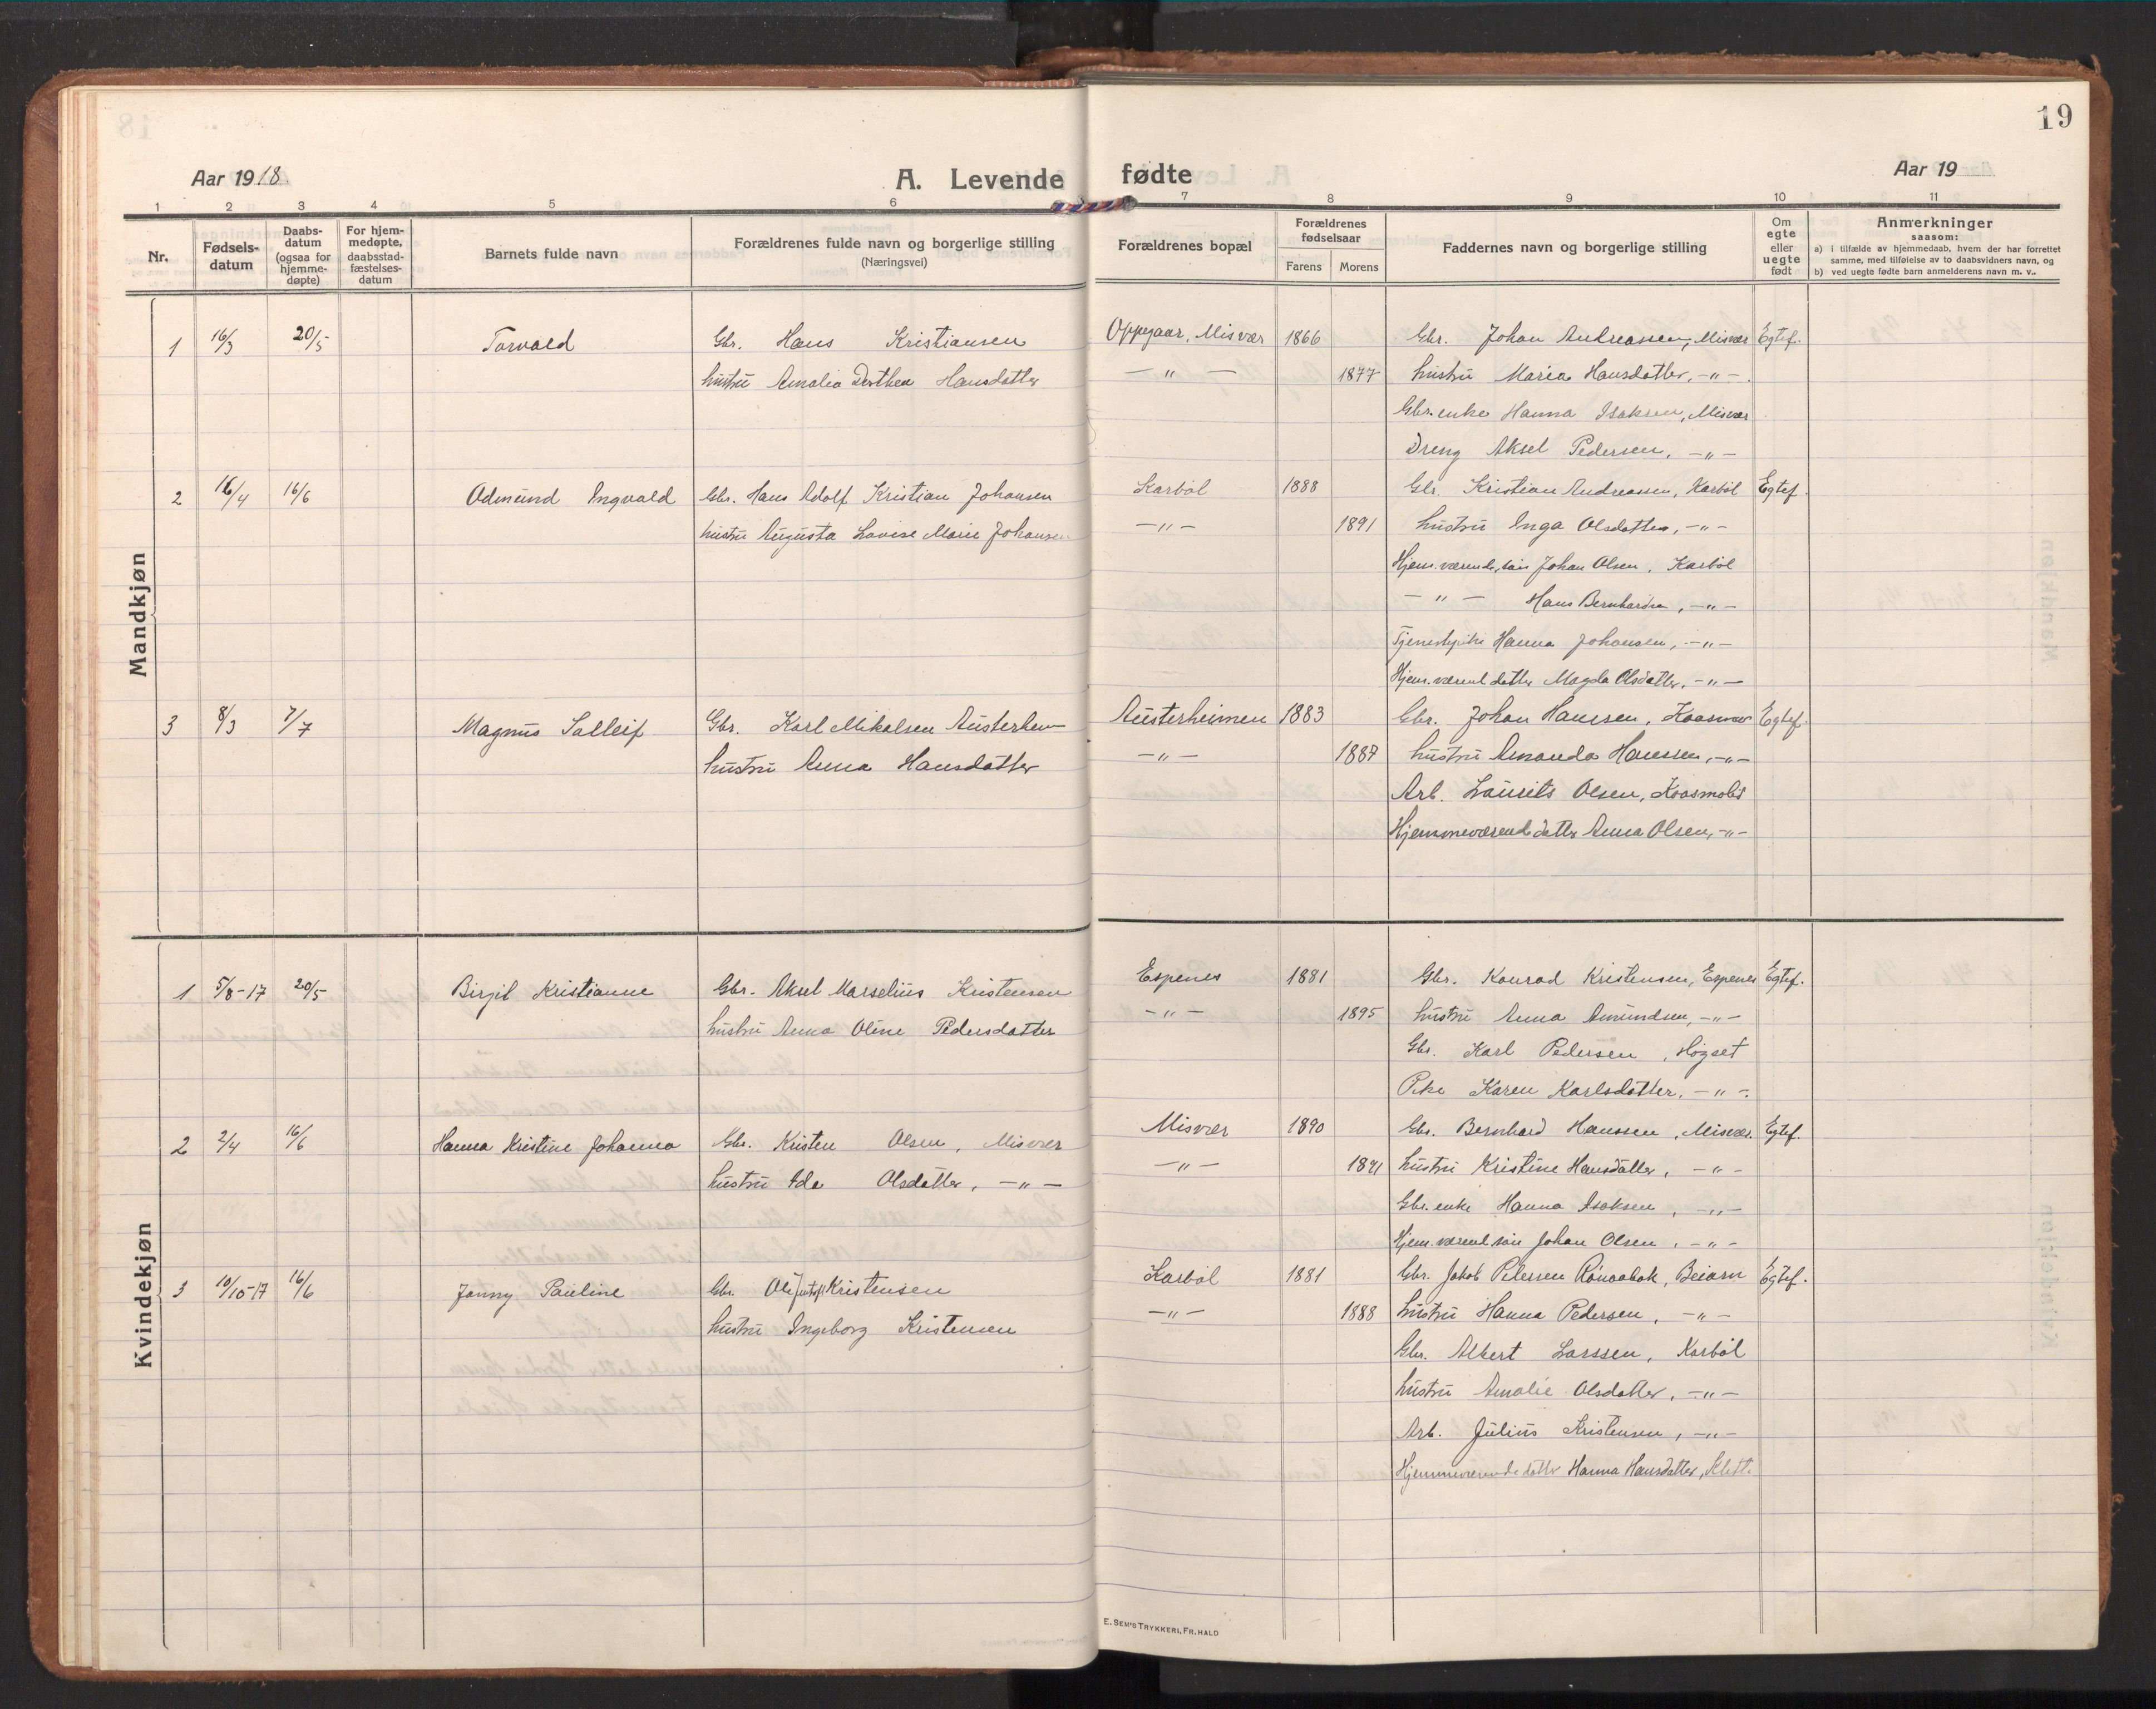 19
Aar 1918.
A. Levende fødte
Aar 19
1 2 3 4 5 6 7 8 9 10 11
Nr.
Fødsels-
datum
Daabs-
datum
(ogsaa for
hjemme-
døpte)
For hjem-
medøpte,
daabsstad-
fæstelses-
datum
Barnets fulde navn
Forældrenes fulde navn og borgerlige stilling
(Næringsvei)
Forældrenes bopæl
Forældrenes
fødselsaar
Farens Morens
Faddernes navn og borgerlige stilling
Om
egte
eller
uegte
født
Anmerkninger
saasom:
a) i tilfælde av hjemmedaab, hvem der har forrettet
samme, med tilføielse av to daabsvidners navn, og
b) ved uegte fødte barn anmelderens navn m. v..
Mandkjøn
1 16/3 20/5 Torvald Gbr. Hans Kristiansen Oppegaar, Misvær 1866 Gbr. Johan Andreassen, Misvær Egtef.
hustru Amalia Dorthea Hansdatter — " — 1877 hustru Maria Hansdatter, -"-.
Gbr. enke Hanna Isaksen, Misvær
Dreng Aksel Pedersen, -"-
2 16/4 16/6 Odmund Ingvald Gbr. Hans Adolf Kristian Johansen Karbøl 1888 Gbr. Kristian Andreassen, Karbøl Egtef.
hustru Augusta Lovise Marie Johansen -"- 1891 hustru Inga Olsdatter, -"-
Hjem.værende søn Johan Olsen, Karbøl
- " - Hans Bernhardsen, -"-
Tjenestepike Hanna Johansen, -"-
Hjem.værend datter Magda Olsdatter, -"-
3 8/3 7/7 Magnus Salleif Gbr. Karl Mikalsen Austerheim Austerheimen 1883 Gbr. Johan Hanssen, Egtef.
hustru Anna Hansdatter -"- 1887 hustru Amanda Hanssen, -"-
Arb. Laurits Olsen,
Hjemmeværend datter Anna Olsen, -"-
Kvindekjøn
1 5/8-17 20/5 Birgit Kristianne Gbr. Aksel Marselius Kristensen Espenes 1881 Gbr. Konrad Kristensen, Espenes Egtef.
hustru Anna Oline Pedersdatter -"- 1895 hustru Anna Amundsen, -"-
Gbr. Karl Pedersen, Høgset
Pike Karen Karlsdatter, -"-.
2 2/4 16/6 Hanna Kristine Johanna Gbr. Kristen Olsen, Misvær Misvær 1890 Gbr. Bernhard Hanssen, Misvær. Egtef.
hustru Ida Olsdatter, -"- -"- 1891 hustru Kristine Hansdatter, -"-
Gbr. enke Hanna Isaksen, -"-
Hjem.værend søn Johan Olsen, -"-
3 10/10-17 16/6 Jonny Pauline Gbr. Ole Kristensen Karbøl 1881 Gbr. Jakob Petersen, Beiarn Egtef.
hustru Ingeborg Kristensen -"- 1888 hustru Hanna Pedersen, -"-
Gbr. Albert Larssen, Karbøl
hustru Amalie Olsdatter, -"-
Arb. Julius Kristensen, -"-
Hjemmeværende datter Hanna Hansdatter, Klett.
E. SEM'S TRYKKERI, FR.HALD